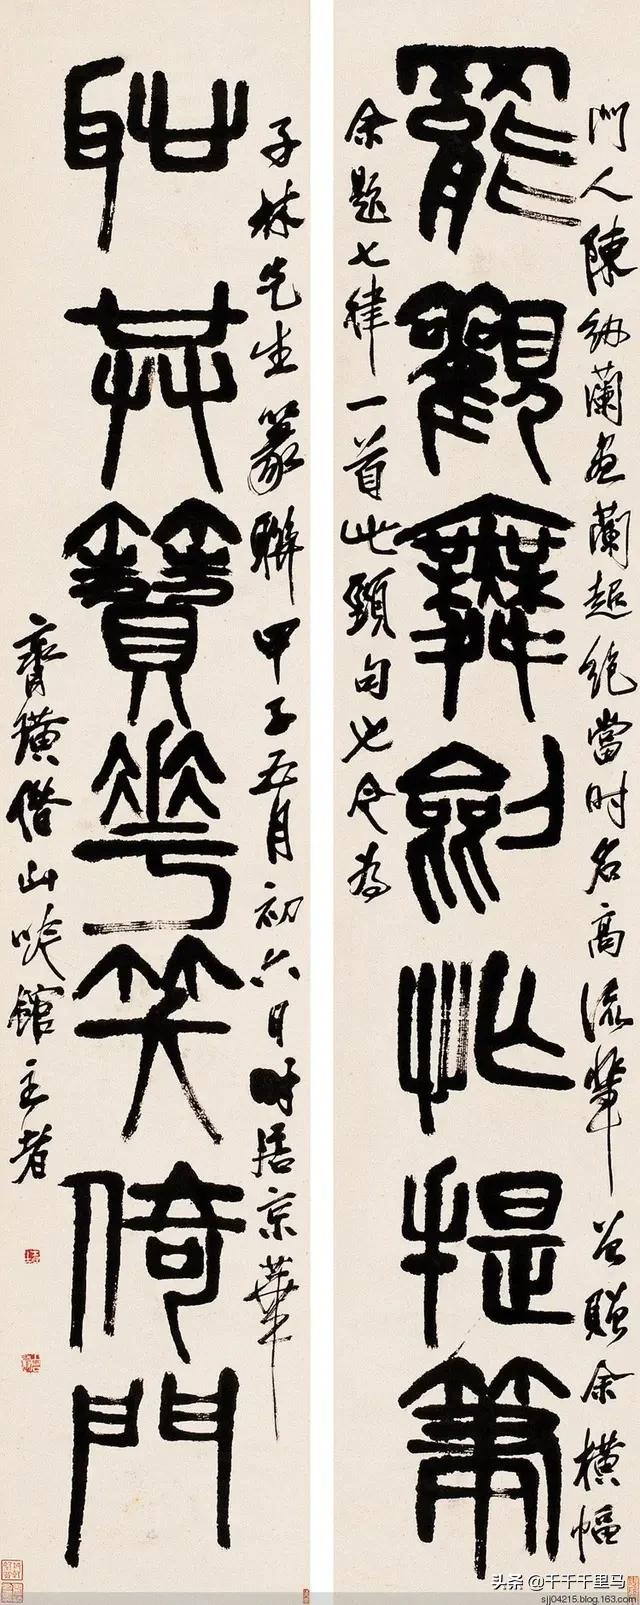 門人陳紉蘭畫蘭超絕當時名高流輩曾贈余橫幅
罷觀舞劍忙提筆
余題七律一首此頸句也今為
子林先生篆聯甲子五月初六日時居京華
耻共簪花笑倚門
齊璜借山吟館主者
头条 @千千千里马
sjj04215.blog.163.com